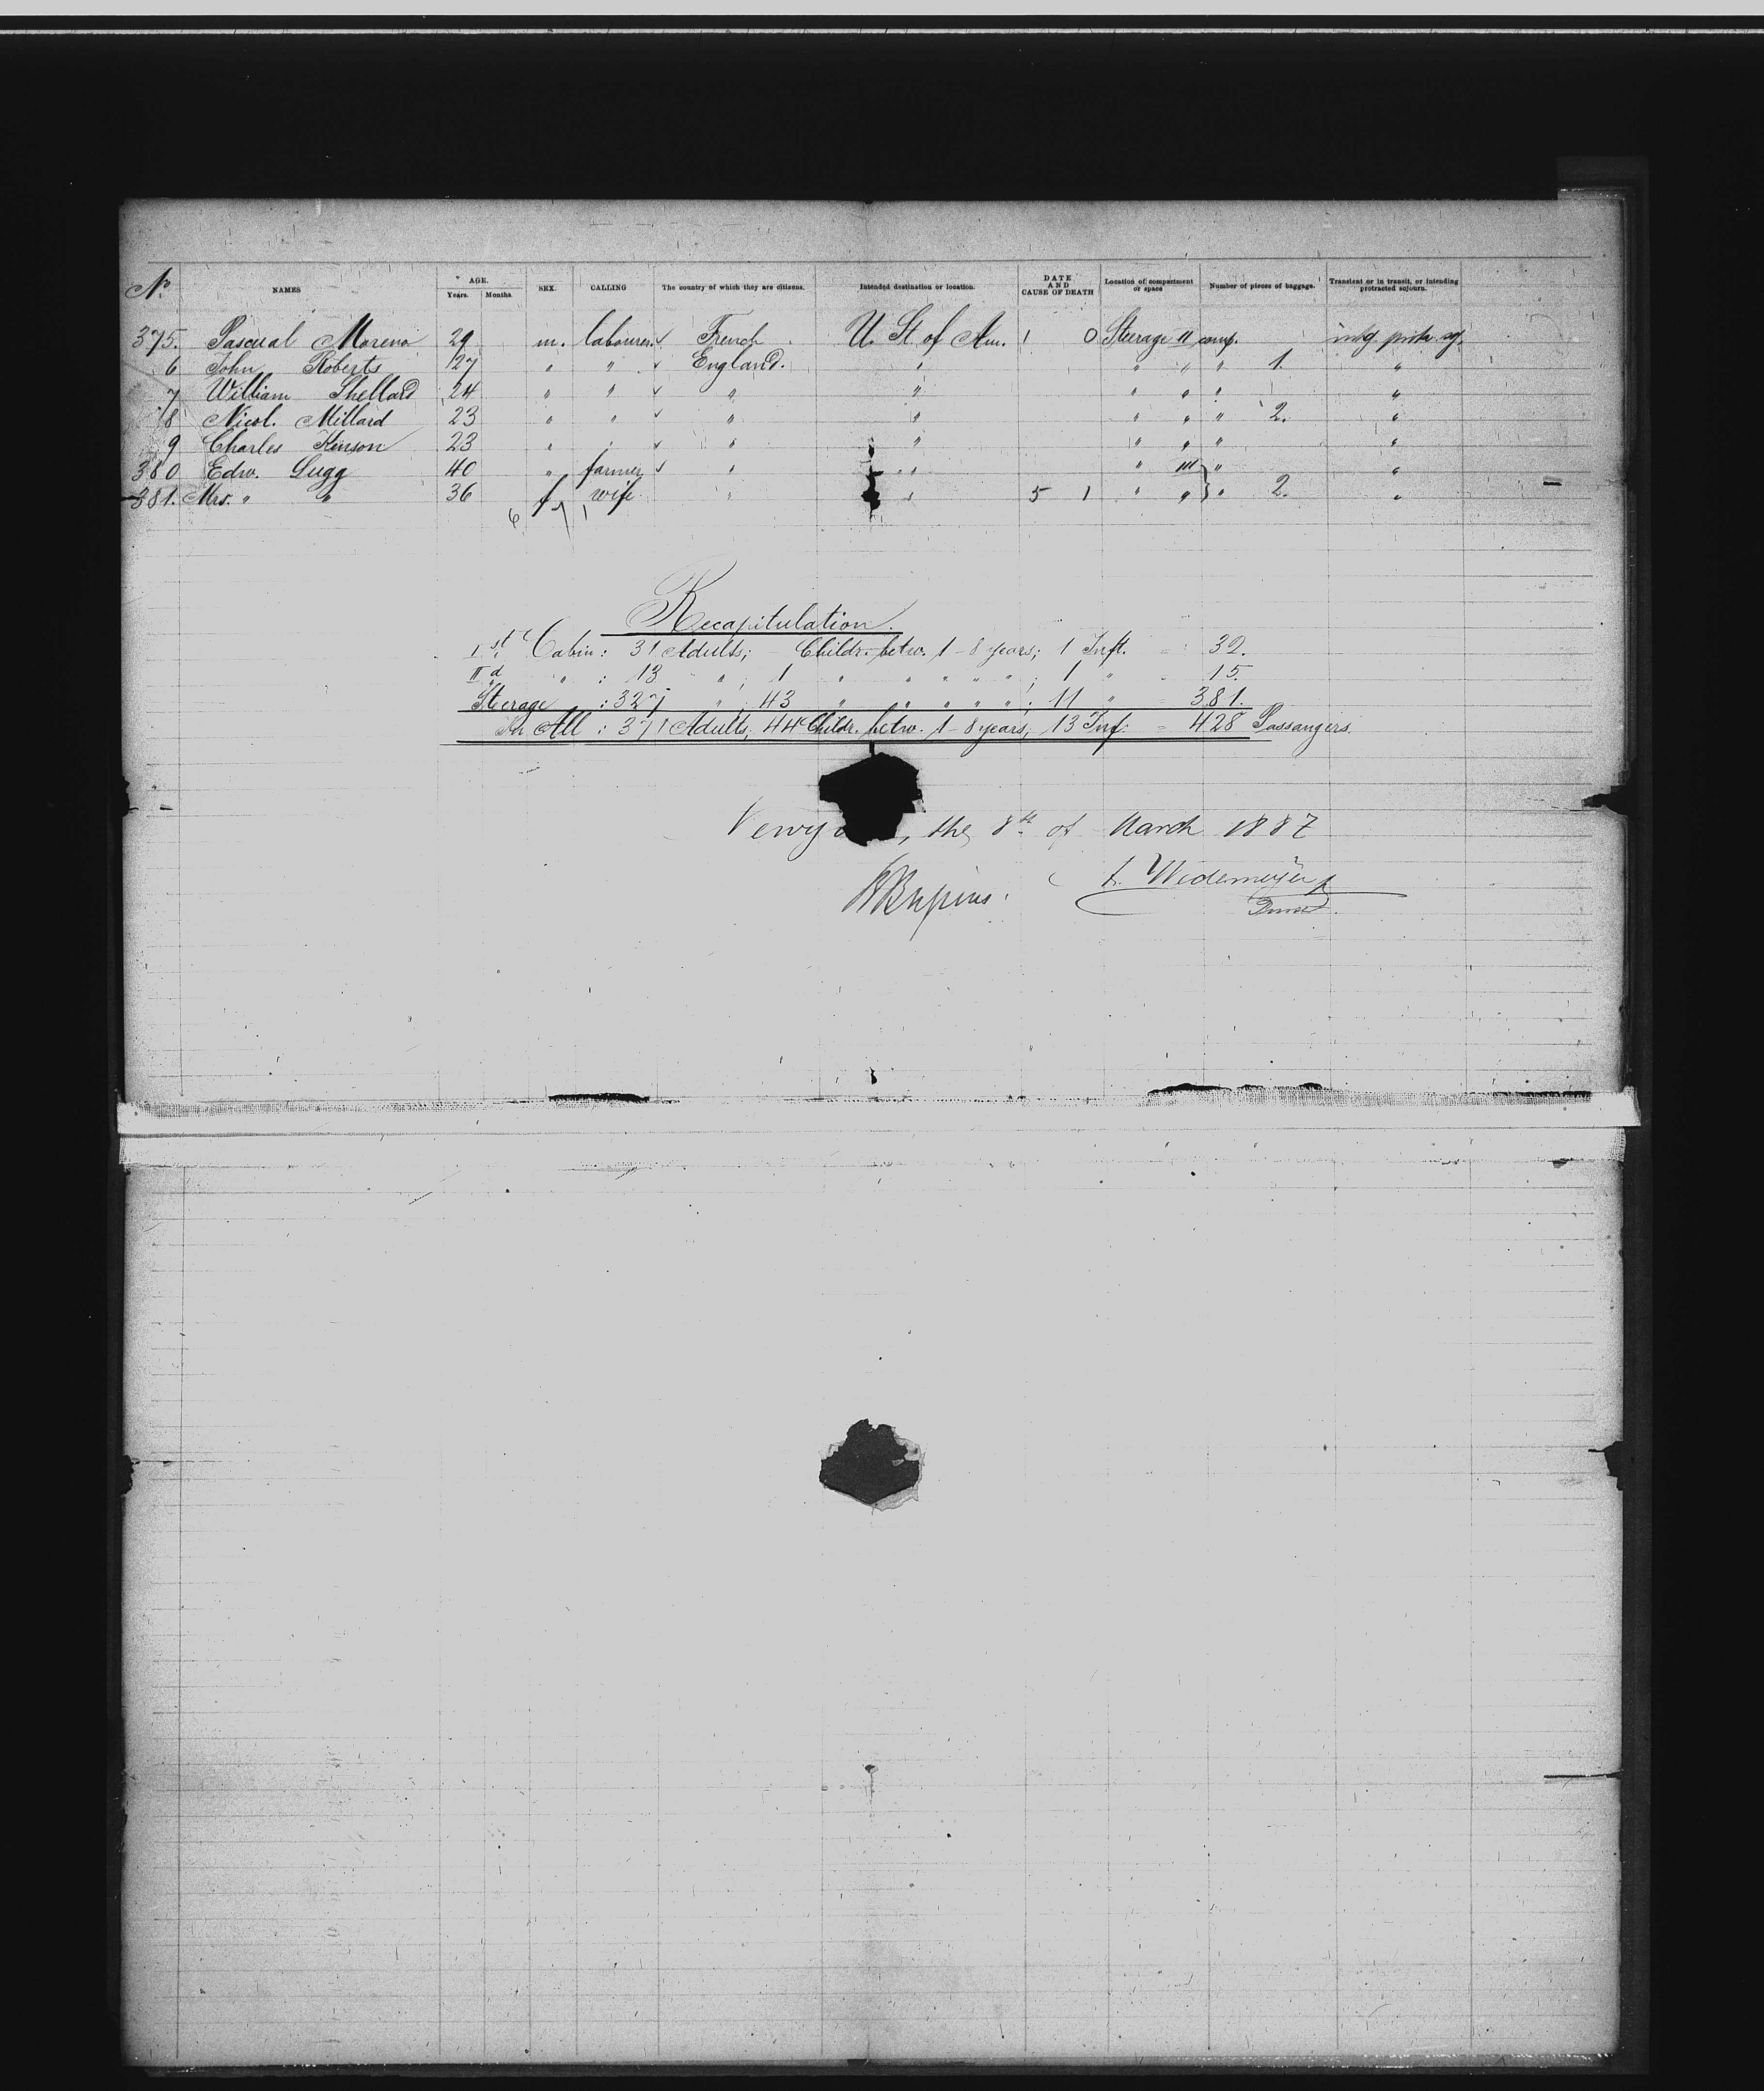 No. NAMES AGE. Years. Months. SEX. CALLING The country of which they are citizens. Intended destination or location. DATE AND CAUSE OF DEATH Location of compartment or space Number of pieces of baggage. Transient or in transit, or intending protracted sojourn.
375. Pascual Moreno 29 m. labourer. ✓ French U. St. of Am. 1 0 Steerage II comp.
6 John Roberts 27 " " ✓ England. " " " " 1. "
7 William Shellard 24 " " ✓ " " " " " "
8 Nicol. Millard 23 " " ✓ " " " " " 2. "
9 Charles Kinson 23 " " ✓ " " " " " "
380 Edw. Lugg 40 " farmer ✓ " " " III " "
381. Mrs. " " 36 f wife " " 5 1 " " " 2. "
6 1
Recapitulation.
Ist Cabin: 31 Adults; - Childr. betw. 1-8 years; 1 Inft. = 32.
IId " : 13 " ; 1 " " " " " ; 1 " = 15.
Steerage : 327 " ; 43 " " " " " ; 11 " 381.
In All : 371 Adults; 44 Childr. betw. 1-8 years; 13 Inf. = 428 Passangers.
the 8th of March 1887
Wedemeyer